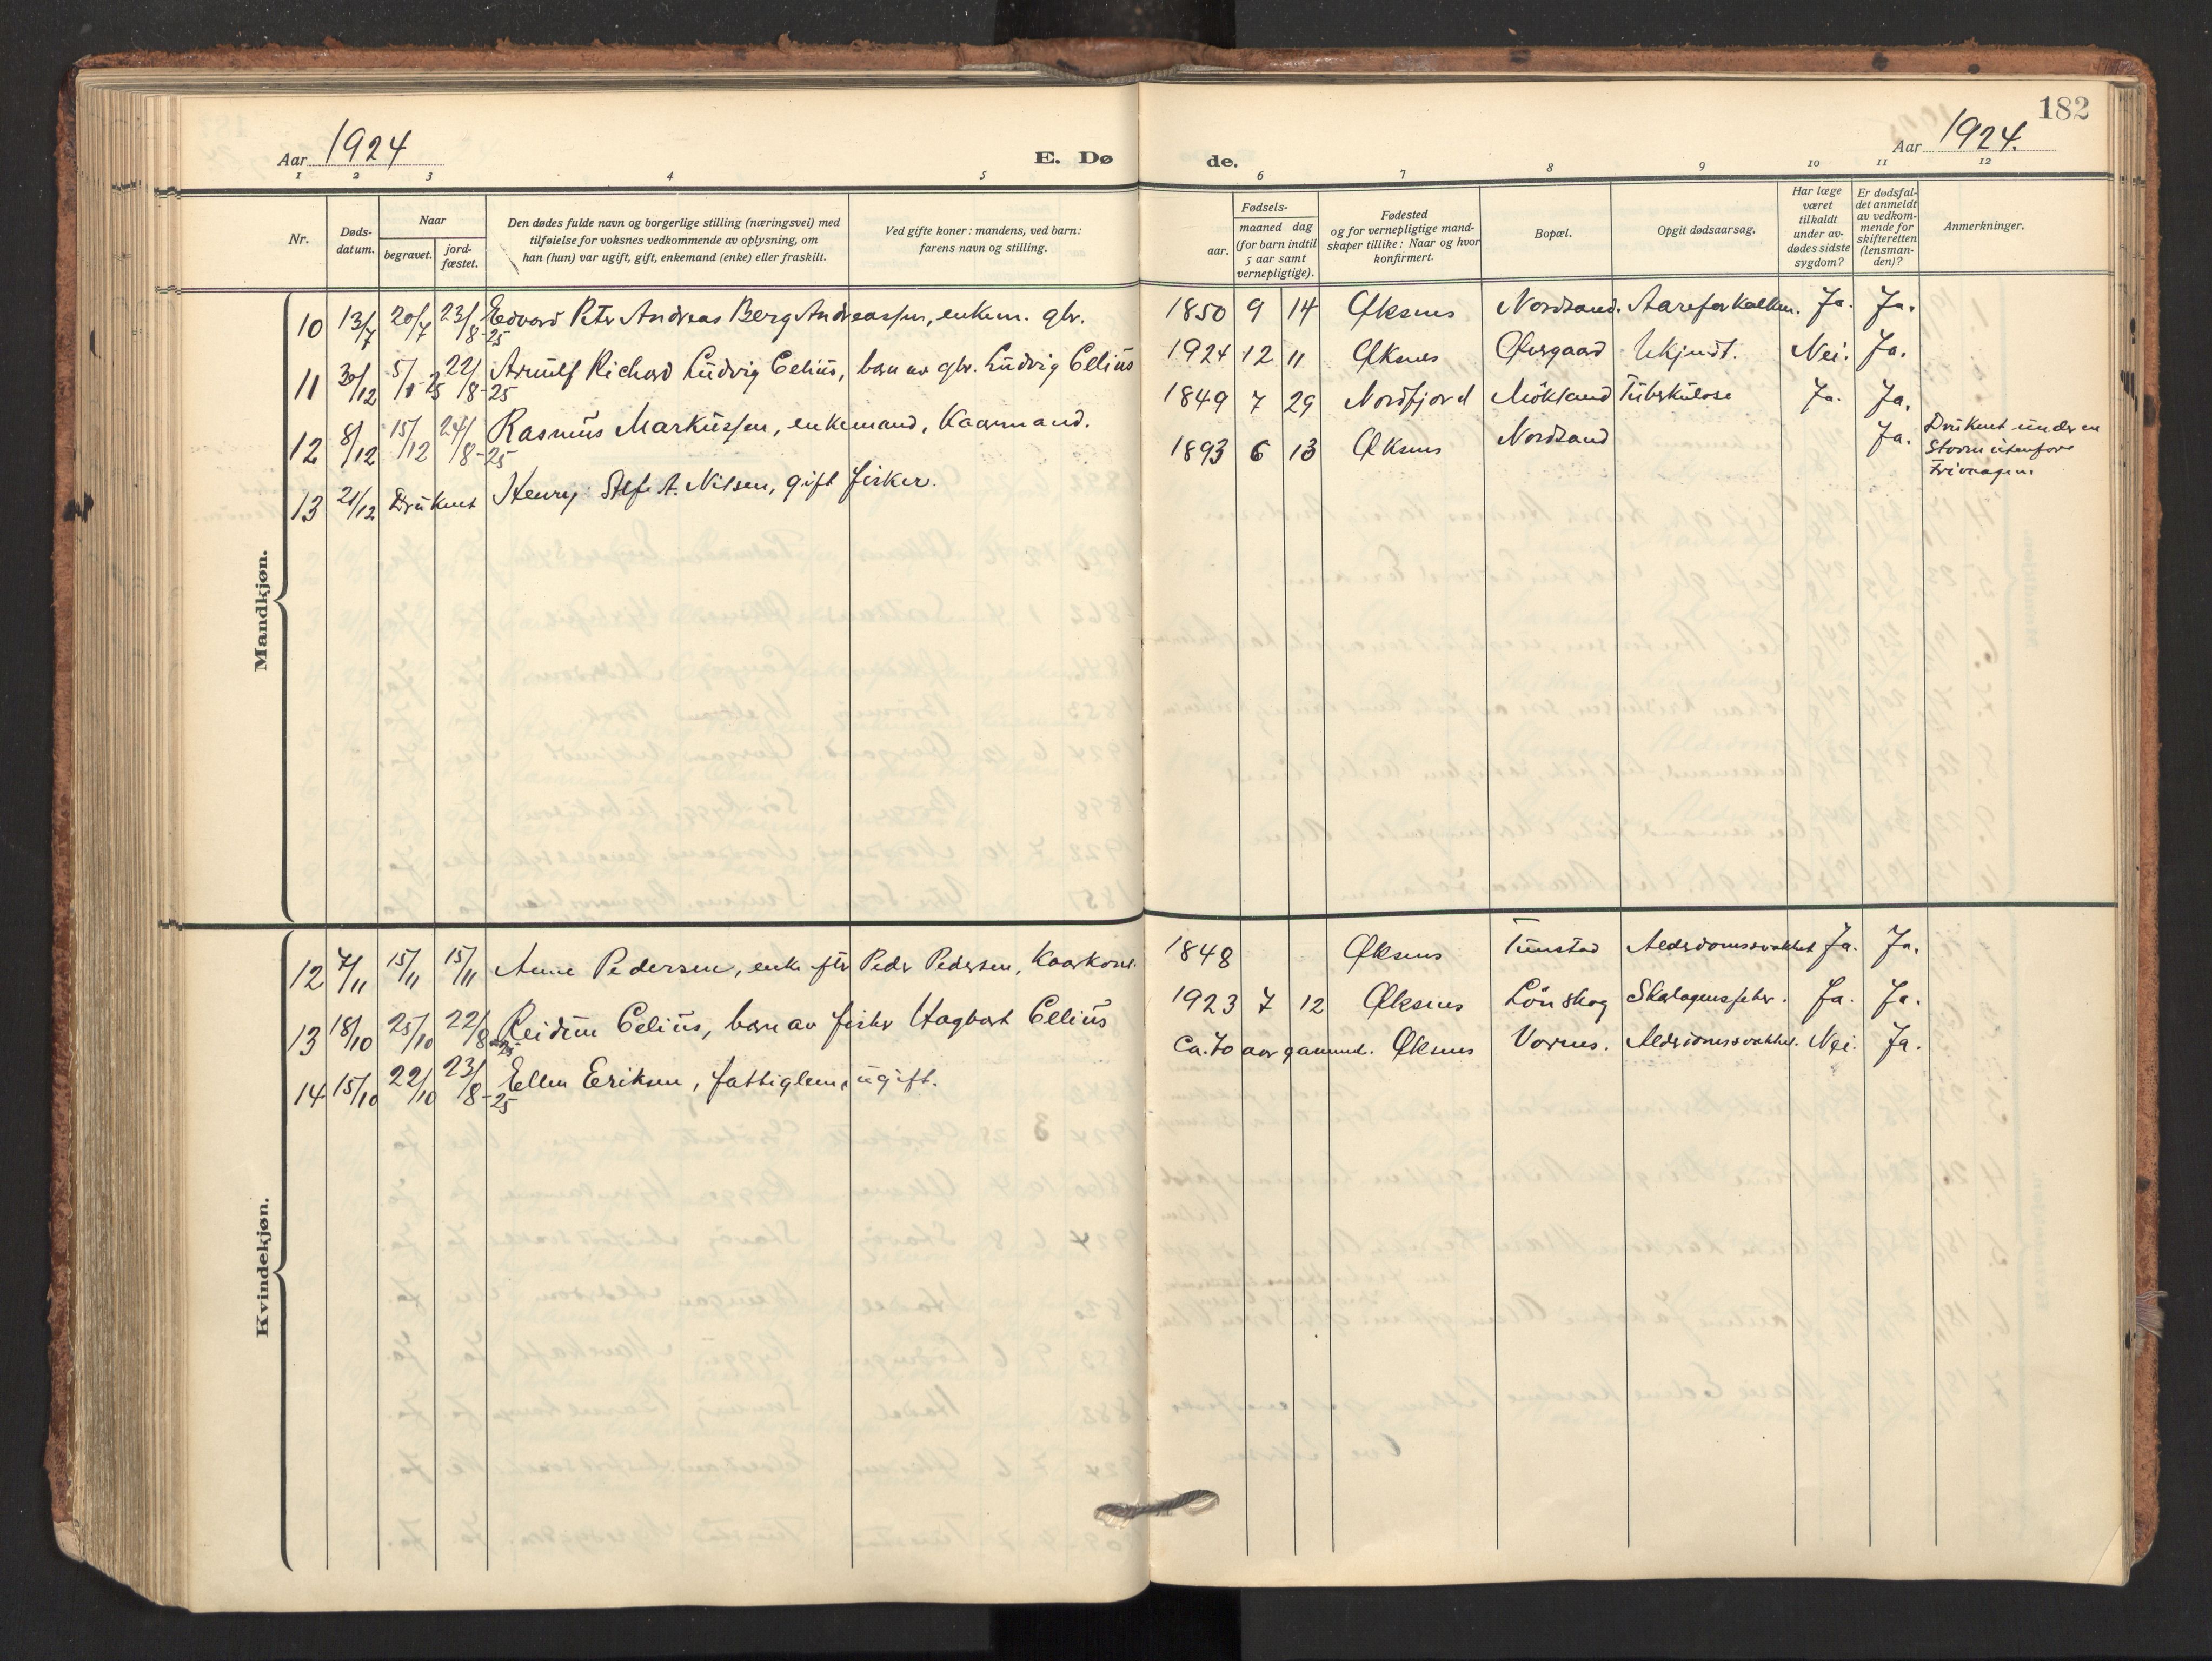 182
Aar 1924
E. Dø
de.
Aar 1924.
1 2 3 4 5 6 7 8 9 10 11 12
Nr.
Døds-
datum.
Naar
begravet.
jord-
fæstet.
Den dødes fulde navn og borgerlige stilling (næringsvei) med
tilføielse for voksnes vedkommende av oplysning, om
han (hun) var ugift, gift, enkemand (enke) eller fraskilt.
Ved gifte koner: mandens, ved barn:
farens navn og stilling.
Fødsels-
aar.
maaned dag
(for barn indtil
5 aar samt
vernepligtige).
Fødested
og for vernepligtige mand-
skaper tillike: Naar og hvor
konfirmert.
Bopæl.
Opgit dødsaarsag.
Har læge
været
tilkaldt
under av-
dødes sidste
sygdom?
Er dødsfal-
det anmeldt
av vedkom-
mende for
skifteretten
(lensman-
den)?
Anmerkninger.
Mandkjøn.
10 13/7 20/7 23/8-25 Edvard Petr Andreas Berg Andreassen, enkem. gbr. 1850 9 14 Øksnes Nordsand. Aareforkalkn. Ja. Ja.
11 30/12 5/1 25 22/8-25 Arnulf Richard Ludvig Celius, barn av gbr. Ludvig Celius 1924 12 11 Øksnes Øvrgaard Ukjendt. Nei. Ja.
12 8/12 15/12 24/8-25 Rasmus Markussen, enkemand, Kaarmand. 1849 7 29 Nordfjord Mökland Tuberkulose Ja. Ja.
13 21/12 Druknet Henry A. Nilsen, gift fisker. 1893 6 13 Øksnes Nordsand Ja. Druknet under en
Storm utenfor
Kvindekjøn.
12 7/11 15/11 15/11 Anne Pedersen, enke eftr Peder Pedersen, Kaarkone. 1848 Øksnes Tunstad Alderdomssvakhet Ja. Ja.
13 18/10 25/10 22/8-25 Reidun Celius, barn av fisker Hagbart Celius 1923 7 12 Øksnes Lönskog Skarlagensfeber. Ja. Ja.
14 15/10 22/10 23/8-25 Ellen Eriksen, fattiglem, ugift. Ca. 70 aar gammel. Øksnes Vornes. Alderdomssvakhet. Nei. Ja.